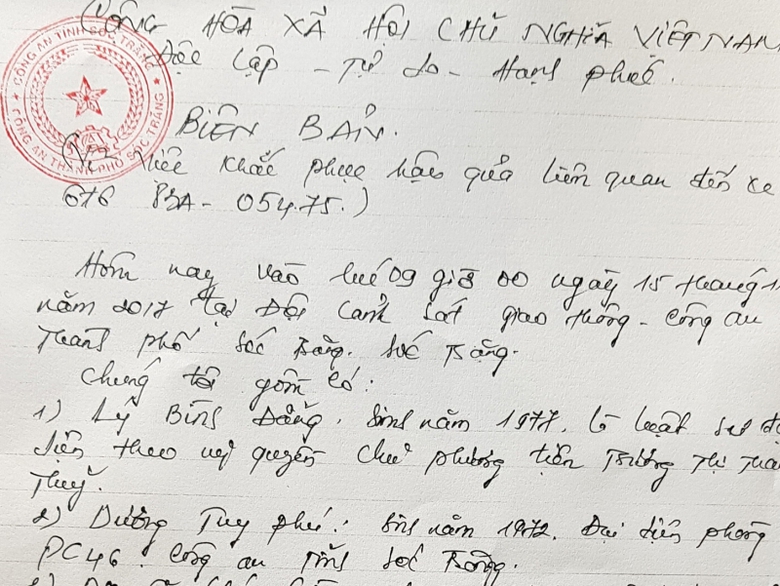 CỘNG HÒA XÃ HỘI CHỦ NGHĨA VIỆT NAM
Độc lập - Tự do - Hạnh phúc.
CÔNG AN TỈNH SÓC TRĂNG
CÔNG AN THÀNH PHỐ SÓC TRĂNG
BIÊN BẢN.
(V/v việc khắc phục hậu quả liên quan đến xe
ôtô 83A-054.75.)
Hôm nay vào lúc 09 giờ 00 ngày 15 tháng 1
năm 2017 tại Đội Cảnh sát giao thông - Công an
Thành phố Sóc Trăng. Sóc Trăng.
Chúng tôi gồm có:
1) Lý Bình Đẳng. Sinh năm 1977. là luật sư đại
diện theo uỷ quyền chủ phương tiện Trương Thị Thanh
Thuỷ.
2) Dương Tuy Phú.: Sinh năm 1972. Đại diện phòng
PC46. Công an Tỉnh Sóc Trăng.